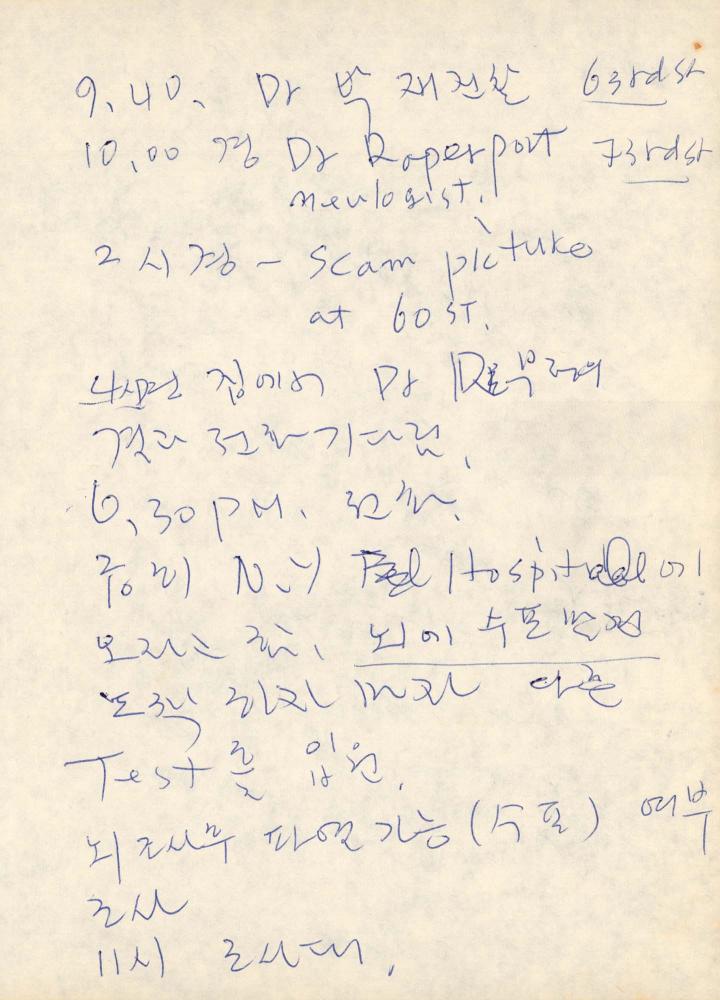 9.40. Dr 박 재진찰 63rd st
10,00 경 Dr Raperport 73rd st
neulogist.
2시경 - Scam picture
at 60 ST.
4시면 집에서 Dr R로부터의
결과 전화 기다림,
6,30 P.M. 전화.
N.Y Hospital에
오라는 전화, 뇌에 수포 발견
도착 하자 마자 다른
Test를 입원.
뇌 조사후 파열 가능 (수포) 여부
조사
11시 조사대,